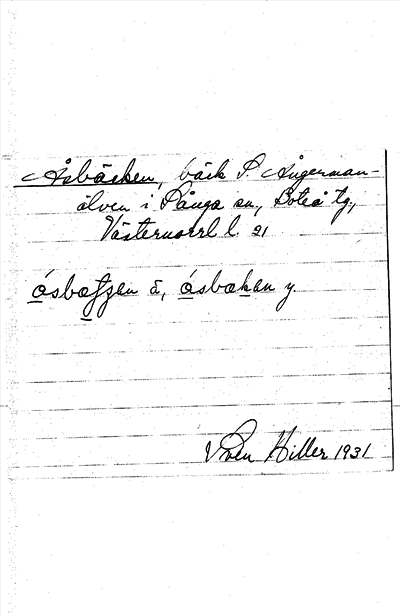 Åsbäcken, bäck t. Ångerman-
älven i Långa sn, Boteå tg,
Västernorrl l. 21
åsbæʃʃen ä, åsbæken y.
Sven Hiller 1931